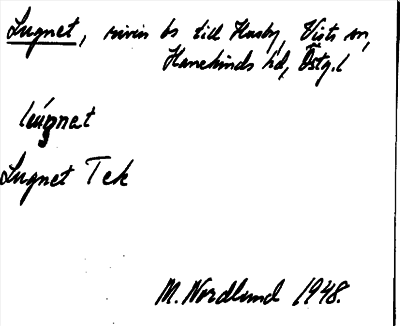 Lugnet, rivin bs till Husby, Vists sn,
Hanekinds hd, Östg.l
lúgnat
Lugnet Tek
M. Nordlund 1948.